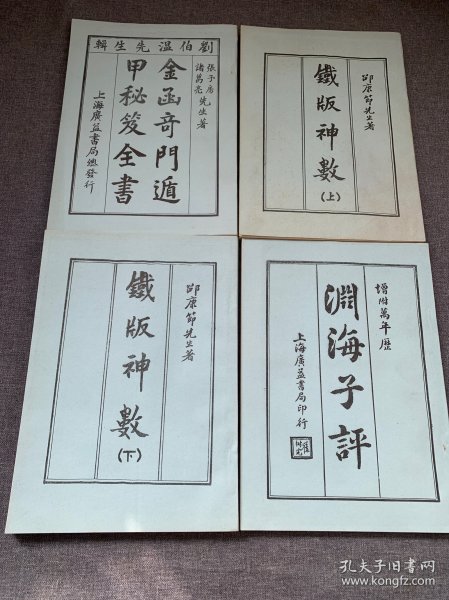 劉伯溫先生輯
張子房
諸葛亮先生著
金函奇門遁
甲秘笈全書
上海廣益書局總發行
邵康節先生著
鐵版神數
(上)
邵康節先生著
鐵版神數
(下)
增附萬年歷
淵海子評
上海廣益書局印行
孔夫子旧书网
www.kongfz.com